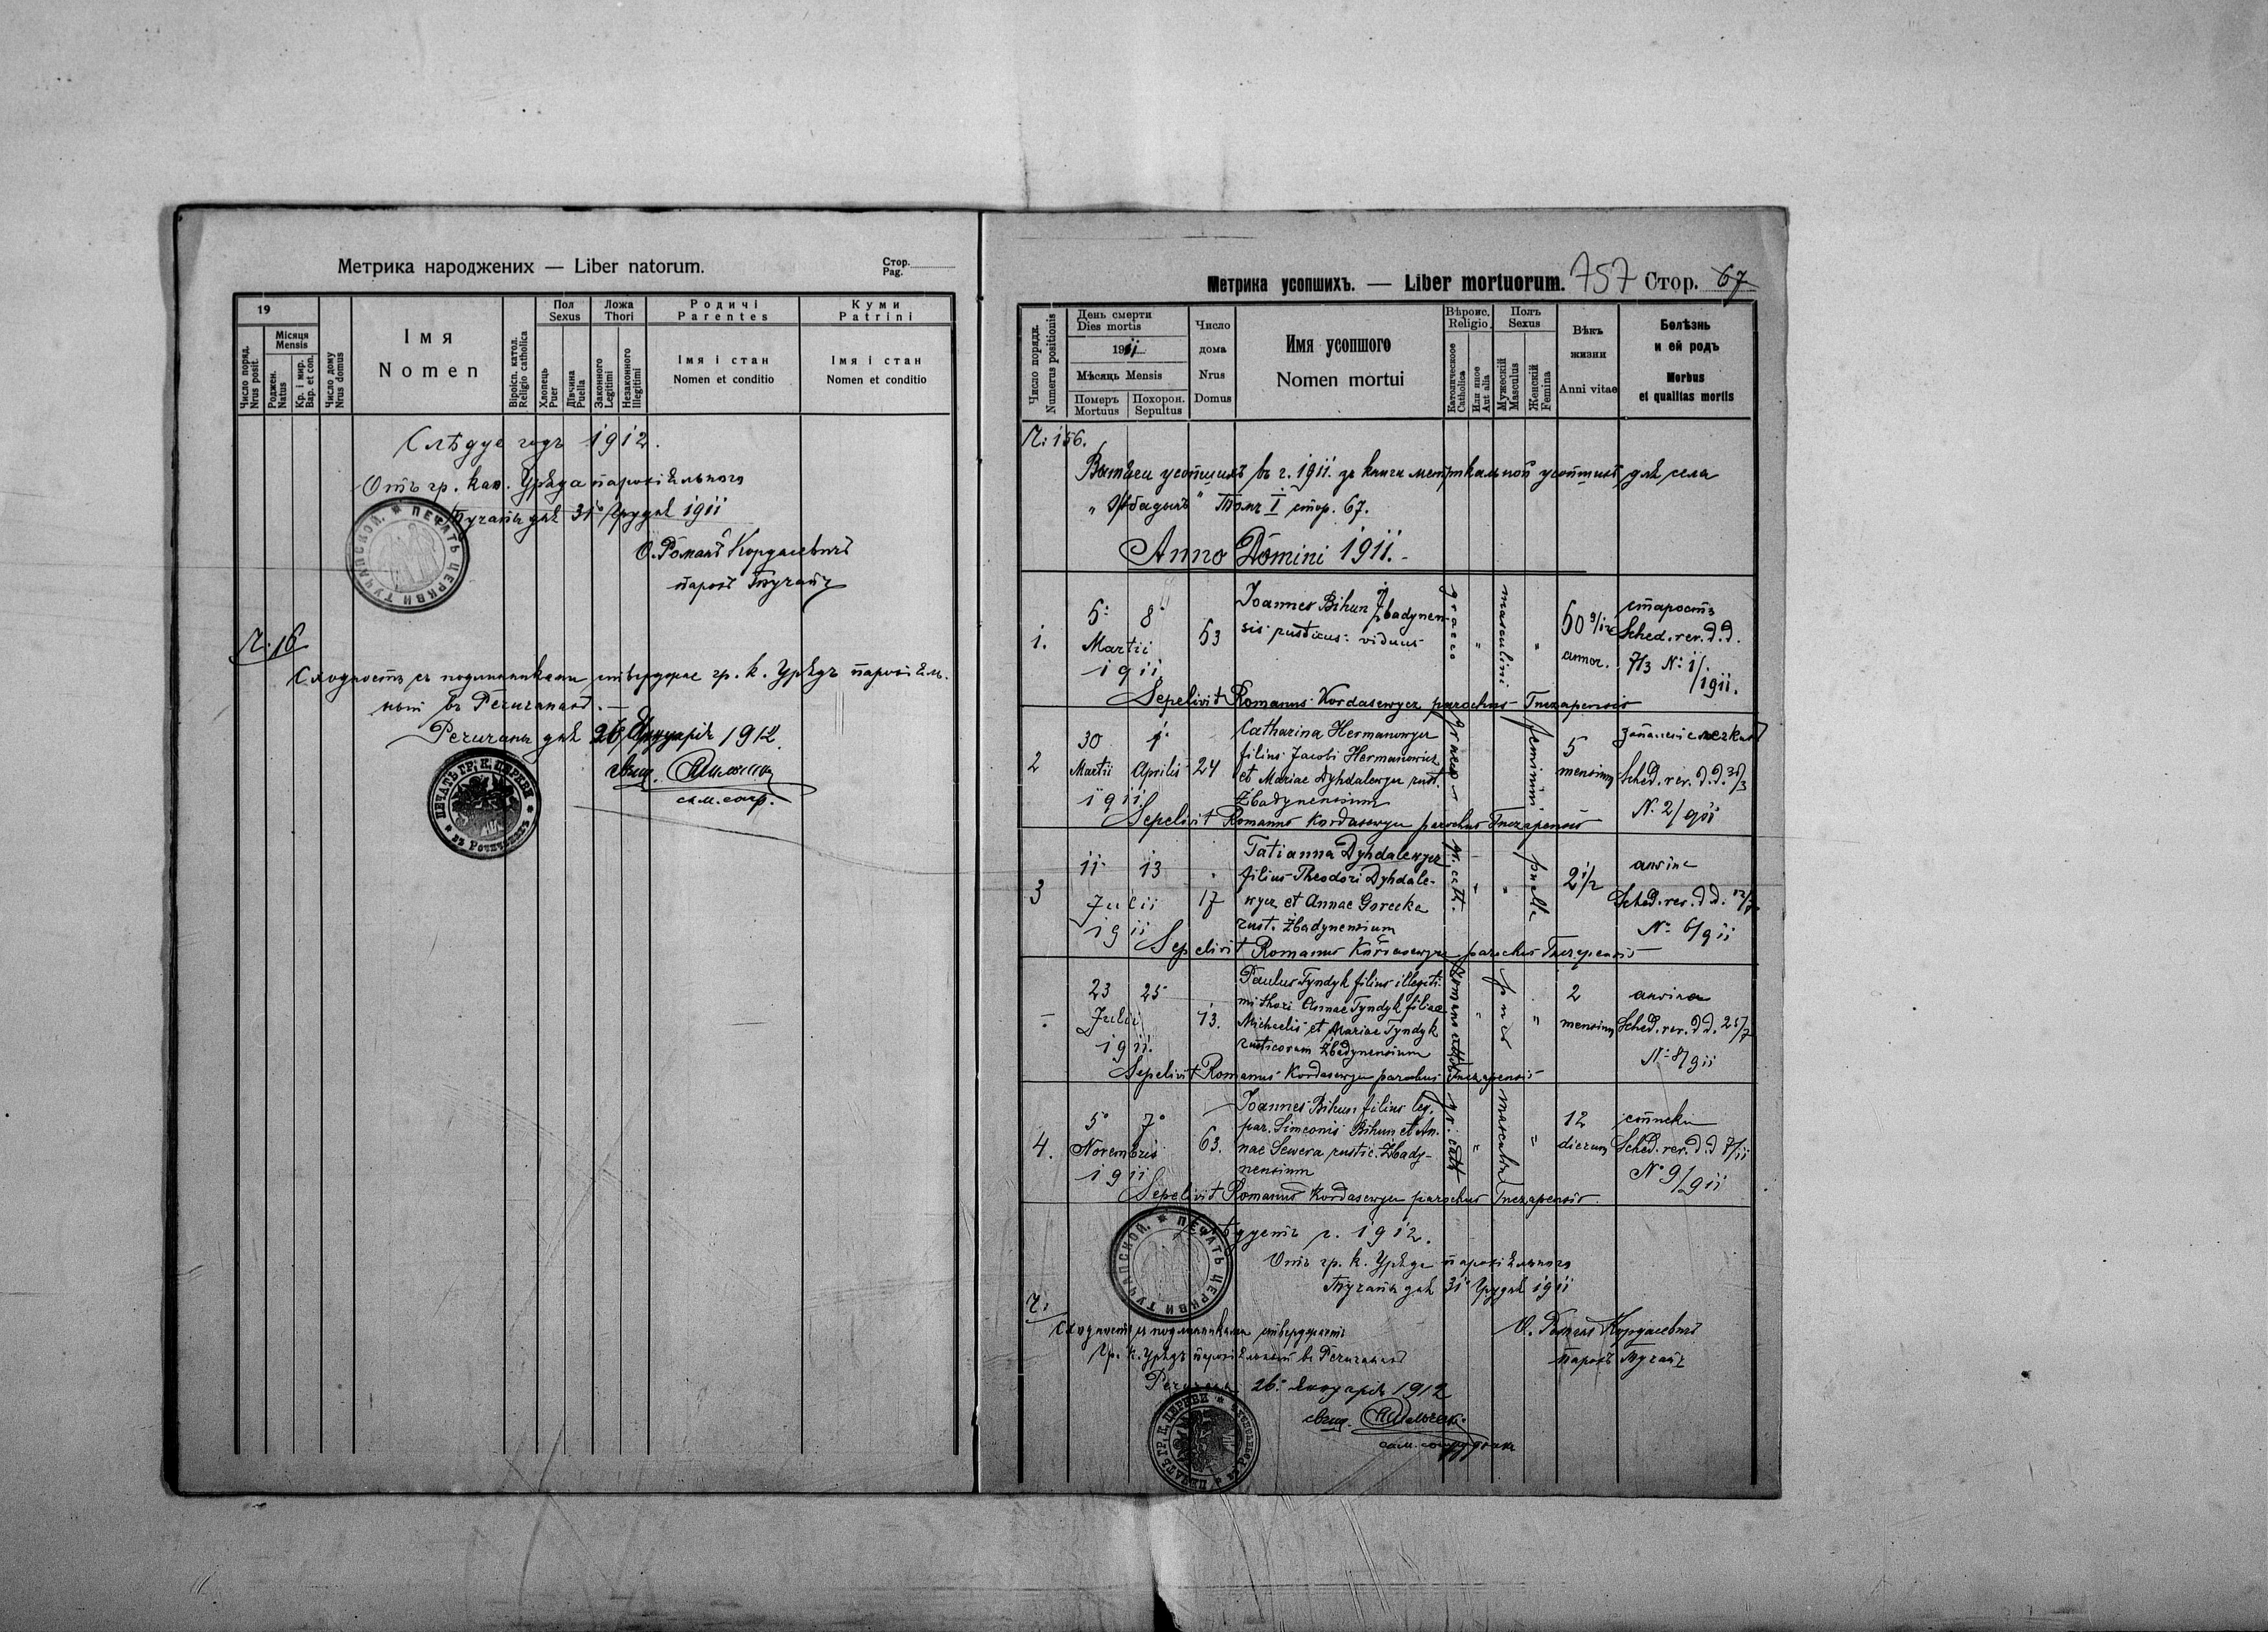 Метрика народжених — Liber natorum.
Стор.
Pag.
19
Число поряд.
Nrus posit.
Місяця
Mensis
Роджен.
Natus
Кр. і мир.
Bap. et con.
Число дому
Nrus domus
Імя
Nomen
Віроісп. катол.
Religio catholica
Пол
Sexus
Хлопець
Puer
Дівчина
Puella
Ложа
Thori
Законного
Legitimi
Незаконного
Illegitimi
Родичі
Parentes
Імя і стан
Nomen et conditio
Куми
Patrini
Імя і стан
Nomen et conditio
Слѣдує годъ 1912.
Отъ гр. кат. Уряда парохіяльного
Тучапы дня 31 Грудня 1911
ПЕЧАТЬ ЦЕРКВИ ТУЧАПСКОЙ.
О. Романъ Кордасевичъ
парохъ Тучапъ
Ч. 16
Сходность съ подлинниками ствердорає гр. к. Урядъ парохіяль-
ный въ Речичанахъ.
Речичаны дня 26 Януарія 1912.
свящ.
сам. сотр.
ПЕЧАТЬ ГР. К. ЦЕРКВИ
Метрика усопшихъ. — Liber mortuorum. 757 Стор. 67
Число порядк.
Numerus positionis
День смерти
Dies mortis
1911
Мѣсяць Mensis
Померъ
Mortuus
Похорон.
Sepultus
Число
дома
Nrus
Domus
Имя усопшого
Nomen mortui
Вѣроис.
Religio
Католическоое
Catholica
Или иное
Aut alia
Полъ
Sexus
Мужескій
Masculus
Женскій
Femina
Вѣкъ
жизни
Anni vitae
Болѣзнь
и ей родъ
Morbus
et qualitas mortis
Ч: 156.
усопшихъ въ г. 1911. зъ книги метрикальной усопшихъ для села
Томъ I стор. 67.
Anno Domini 1911.-
1.
5. 8.
Martii
1911.
53
Joannes Bihun Żbadynen-
sis rusticus: viduus
graeco
masculini
60 9/12
annor.
старость
Sched. rev. d.d.
7/3 Nº 1/
1911.
Sepelivit Romanus Kordasewycz parochus Tuczapensis
2
30 1.
Martii Aprilis
1911.
24
Catharina Hermanowycz
filius Jacobi Hermanowicz
et Mariae Dyhdalewycz rust.
Żbadynensium
feminini
5
mensium
Sched. rev. d.d. 31/3
N. 2/911
Sepelivit Romanus Kordasewycz parochus Tuczapensis
3
11 13
Julii
1911
17
Tatianna Dyhdalewycz
filius Theodori Dyhdale-
wycz et Annae Gorecka
rust. Żbadynensium
gr. cath.
puella
2 1/2
Sched. rev. d.d.
Nº 6/911
Sepelivit Romanus Kordasewycz parochus Tuczapensis
23 25
Julii
1911.
13.
Paulus Tyndyk filius illegiti-
mi thori Annae Tyndyk filiae
Michaelis et Mariae Tyndyk
rusticorum Żbadynensium
puer
2
mensium
Sched. rev. d.d. 25/7
Nº 8/911
Sepelivit Romanus Kordasewycz parochus Tuczapensis
4.
5º 7º
Novembris
1911
63.
Joannes Bihun filius leg.
par. Simeonis Bihun et An-
nae Sewera rustic. Żbady-
nensium
gr. cath
12
dierum
Sched. rev. d.d 7/11
Nº 9/911
Sepelivit Romanus Kordasewycz parochus Tuczapensis.
ПЕЧАТЬ ЦЕРКВИ ТУЧАПСКОЙ.
г. 1912.
Отъ гр. к. Уряда парохіяльного
Тучапы дня 31 Грудня 1911
О. Романъ Кордасевичъ
парохъ Тучапъ
Ч:
Сходность съ подлинниками
Гр. к. Урядъ парохіяльный въ Речичанахъ
26. Януарія 1912
свящ.
ПЕЧАТЬ ГР. К. ЦЕРКВИ